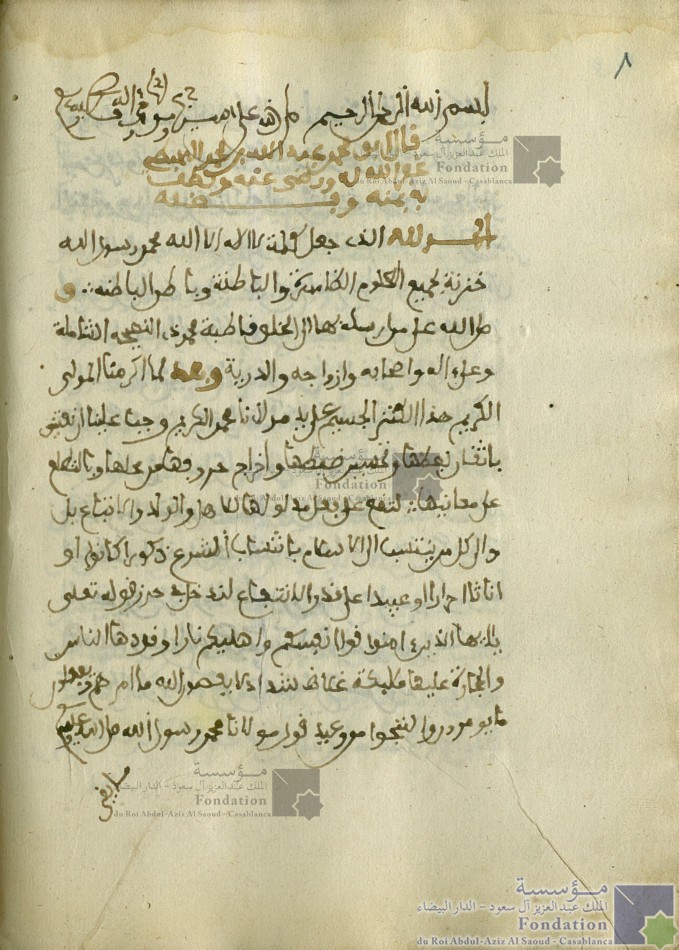 ٨
بسم الله الرحمن الرحيم صلى الله على سيدنا ومولانا محمد وآله
قال ابو محمد عبد الله بن محمد
عفا الله له ورضي عنه ولطف
به بمنه وفضله
الحمد لله الذي جعل كلمة لا اله الا الله محمد رسول الله
خزنة لجميع العلوم الظاهرة والباطنة وباطن الباطنة و
صلى الله على من ارسله بها الى الخلق قاطبة محمد ذي البهجة الشاملة
وعلى اله واصحابه وازواجه والذرية وبعد لما اكرمنا المولى
الكريم هذا الكنز الجسيم على يد مولانا محمد الكريم وجب علينا ان نعتني
باتقان لفظها وتحسين ضبطها واخراج حروفها من محلها وبالتطلع
على معانيها لتقع على بعض مدلولها للاهل والولد والاتباع بل
والى كل من ينتسب الى الاسلام بانتساب الشرع ذكورا كانوا او
اناثا احرارا او عبيدا على قدر الانتجاع لندخل به حرز قوله تعلى
يا ايها الذين ءامنوا قوا انفسكم واهليكم نارا وقودها الناس
والحجارة عليها مليكة غلاظ شداد لا يعصون الله ما امرهم ويفعلون
ما يومرون ولننجوا من وعيد قول مولانا محمد رسول الله صلى الله عليه وسلم
مؤسسة
الملك عبد العزيز آل سعود - الدار البيضاء
Fondation
du Roi Abdul-Aziz Al Saoud - Casablanca